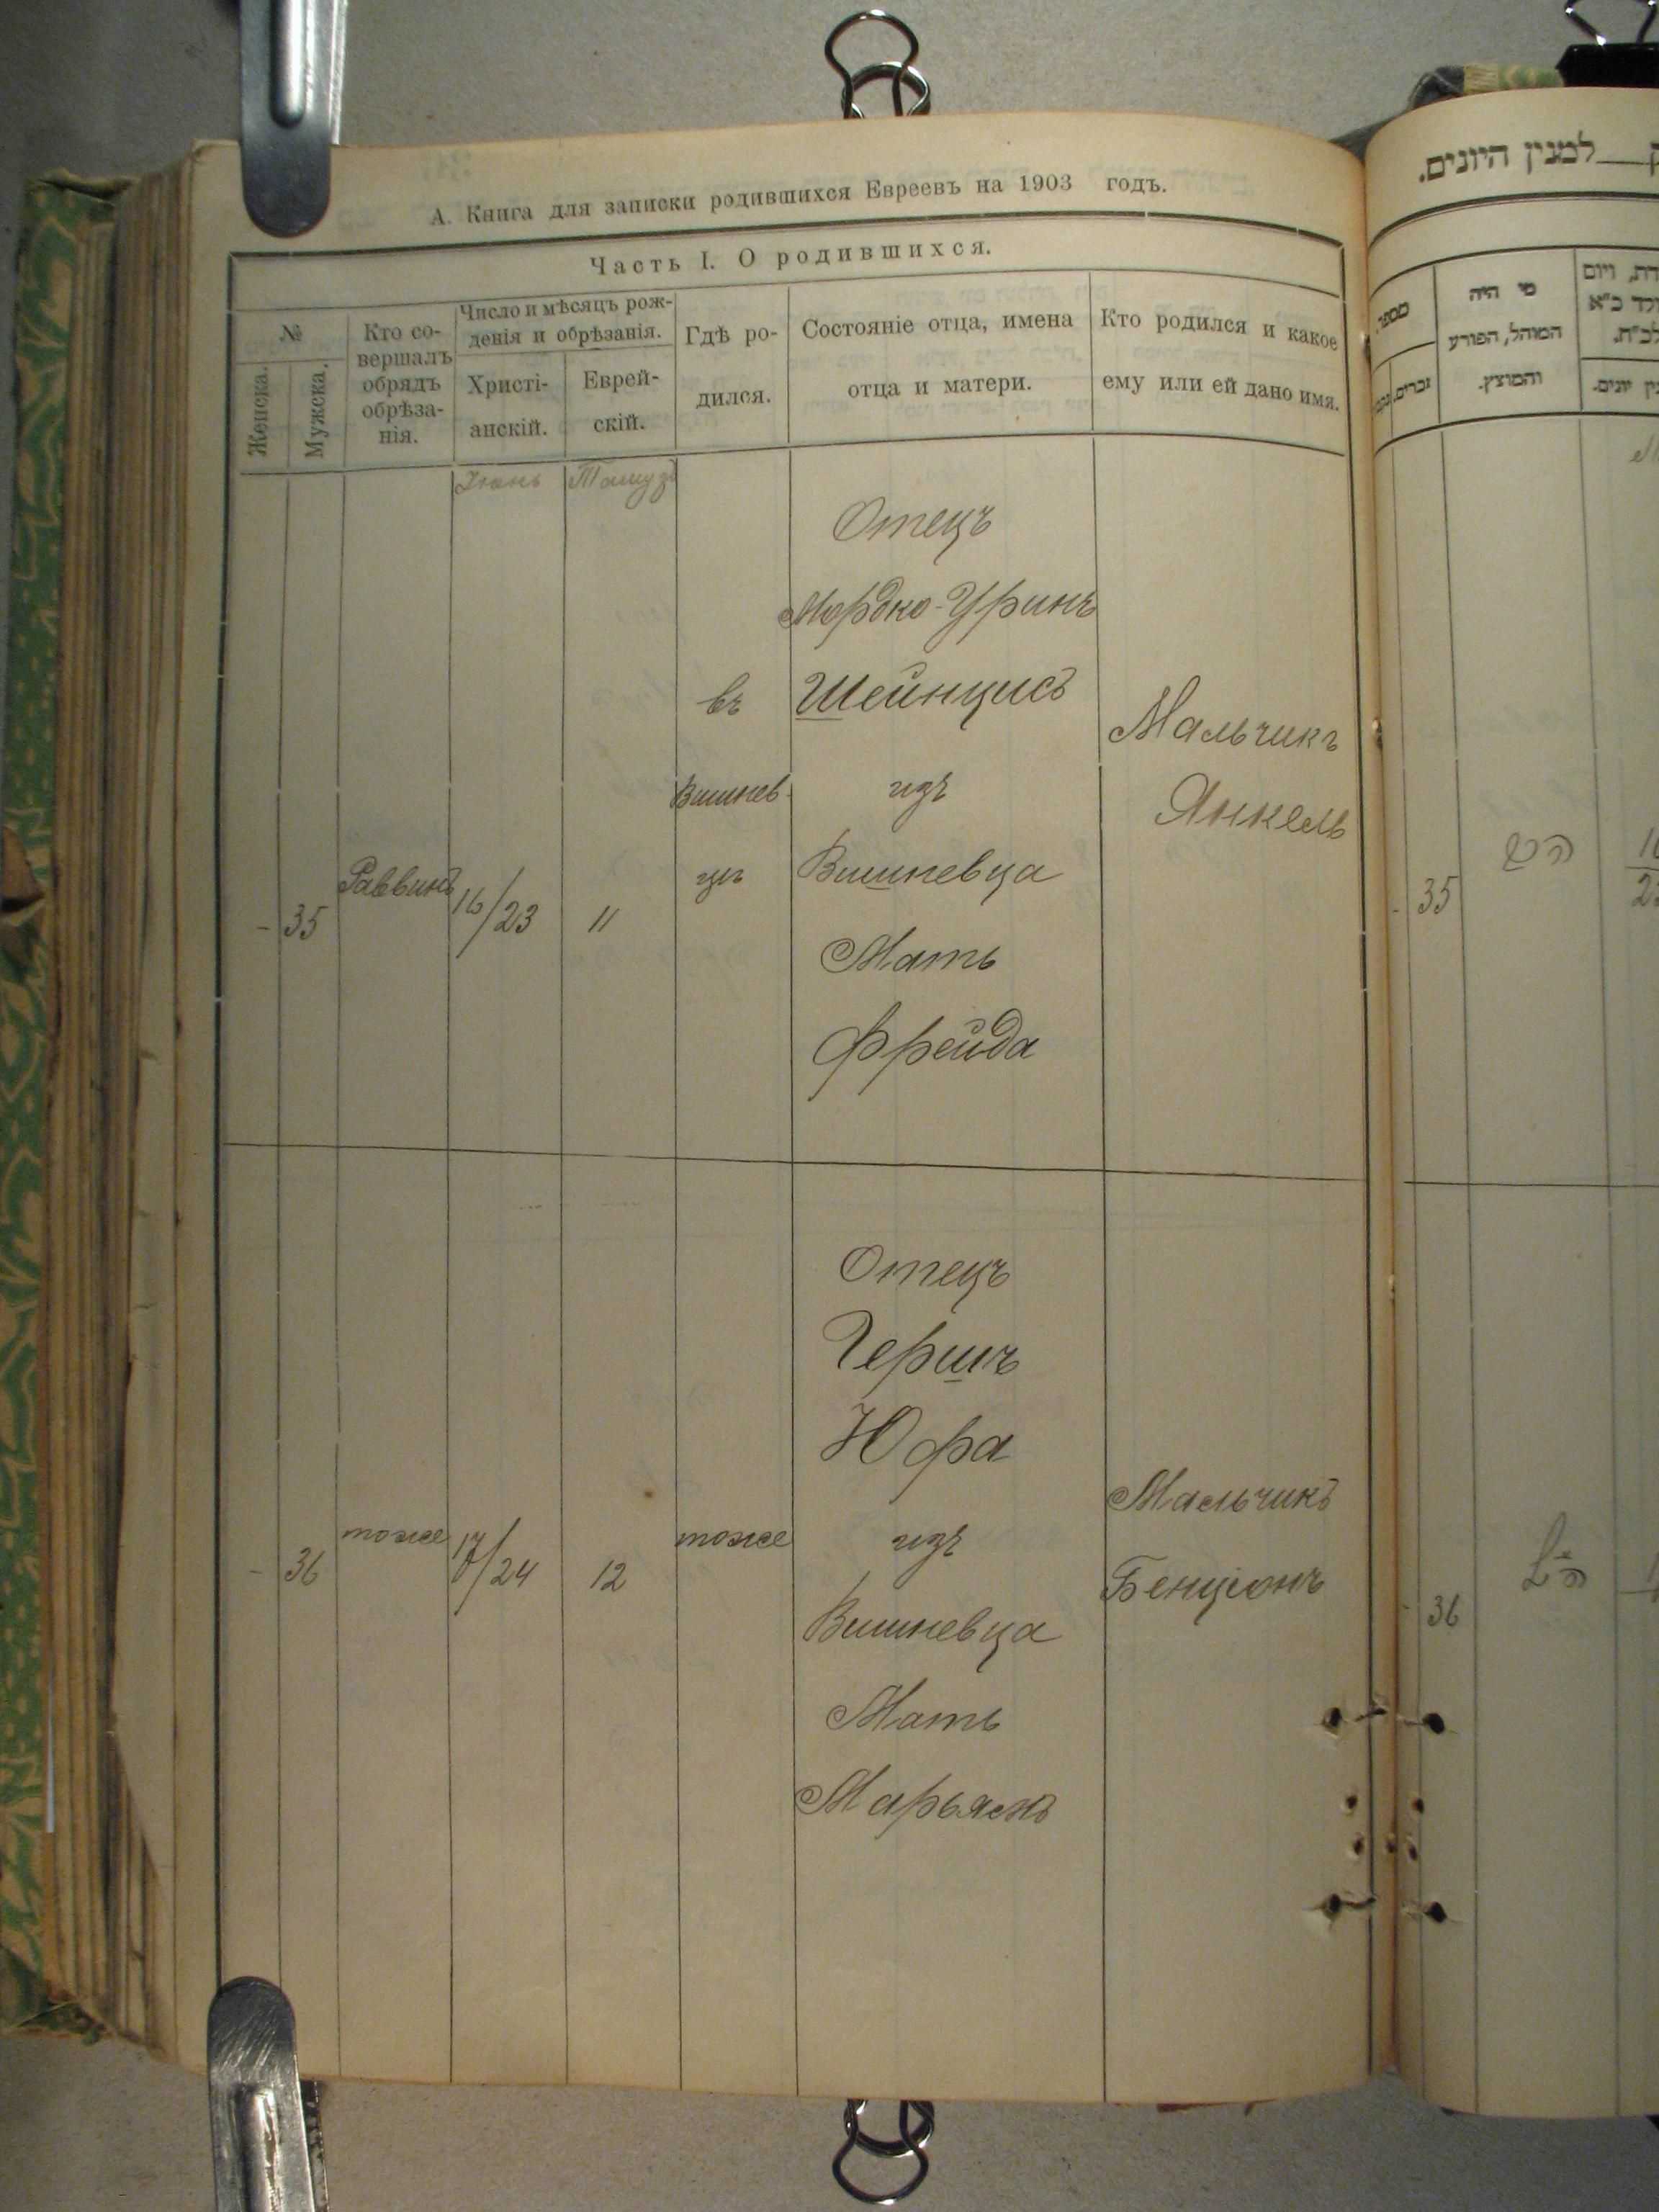 А. Книга для записки родившихся Евреевъ на 1903 годъ.
Часть I. О родившихся.
№
Женска.
Мужска.
Кто со-
вершалъ
обрядъ
обрѣза-
нія.
Число и мѣсяцъ рож-
денія и обрѣзанія.
Христі-
анскій.
Еврей-
скій.
Гдѣ ро-
дился.
Состояніе отца, имена
отца и матери.
Кто родился и какое
ему или ей дано имя.
Іюнь
Тамузъ
- 35
Раввинъ
16/23
11
въ
Вишнев-
цѣ
Отецъ
Мордко-Уринъ
Шейнцисъ
изъ
Вишневца
Мать
Фрейда
Мальчикъ
Янкель
- 36
тоже
17/24
12
тоже
Отецъ
Гершъ
Юфа
изъ
Вишневца
Мать
Марьясъ
Мальчикъ
Бенціонъ
למנין היונים.
מספר.
זכרים.
מי היה
המוהל, הפורע
והמוצץ.
- 35
- 36